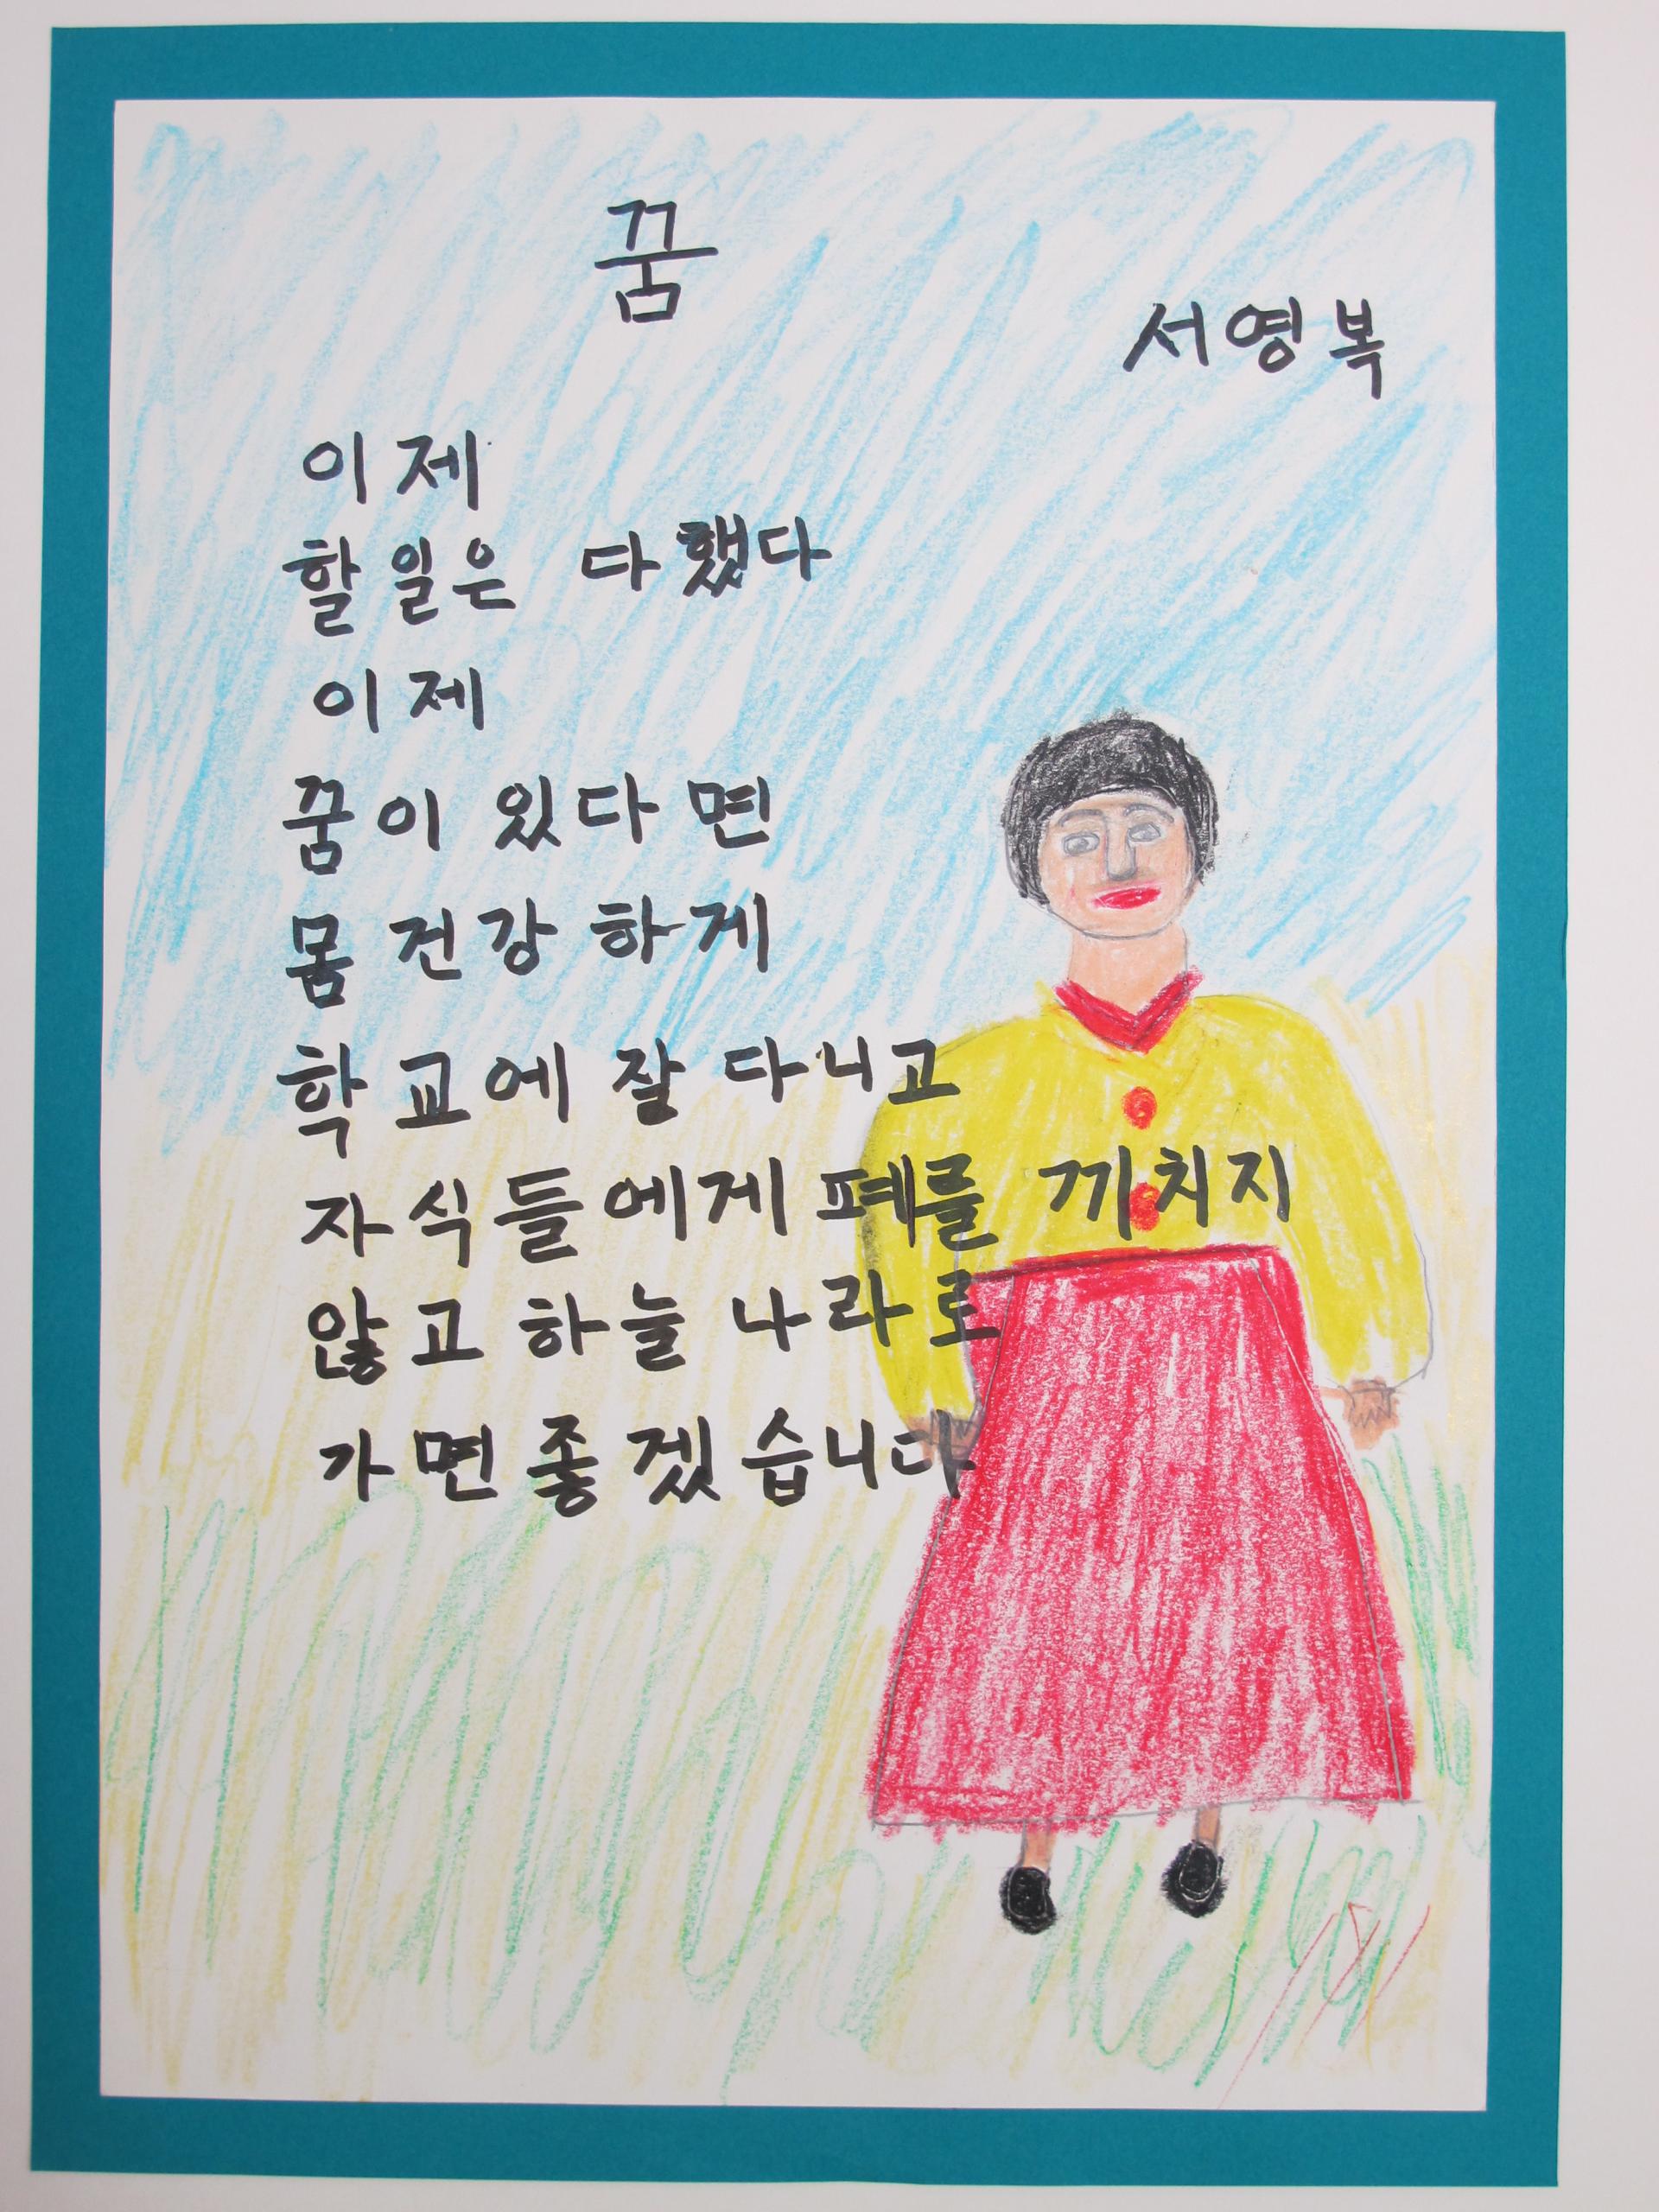 꿈
서영복
이제
할 일은 다했다
이제
꿈이 있다면
몸 건강하게
학교에 잘 다니고
자식들에게 폐를 끼치지
않고 하늘나라로
가면 좋겠습니다